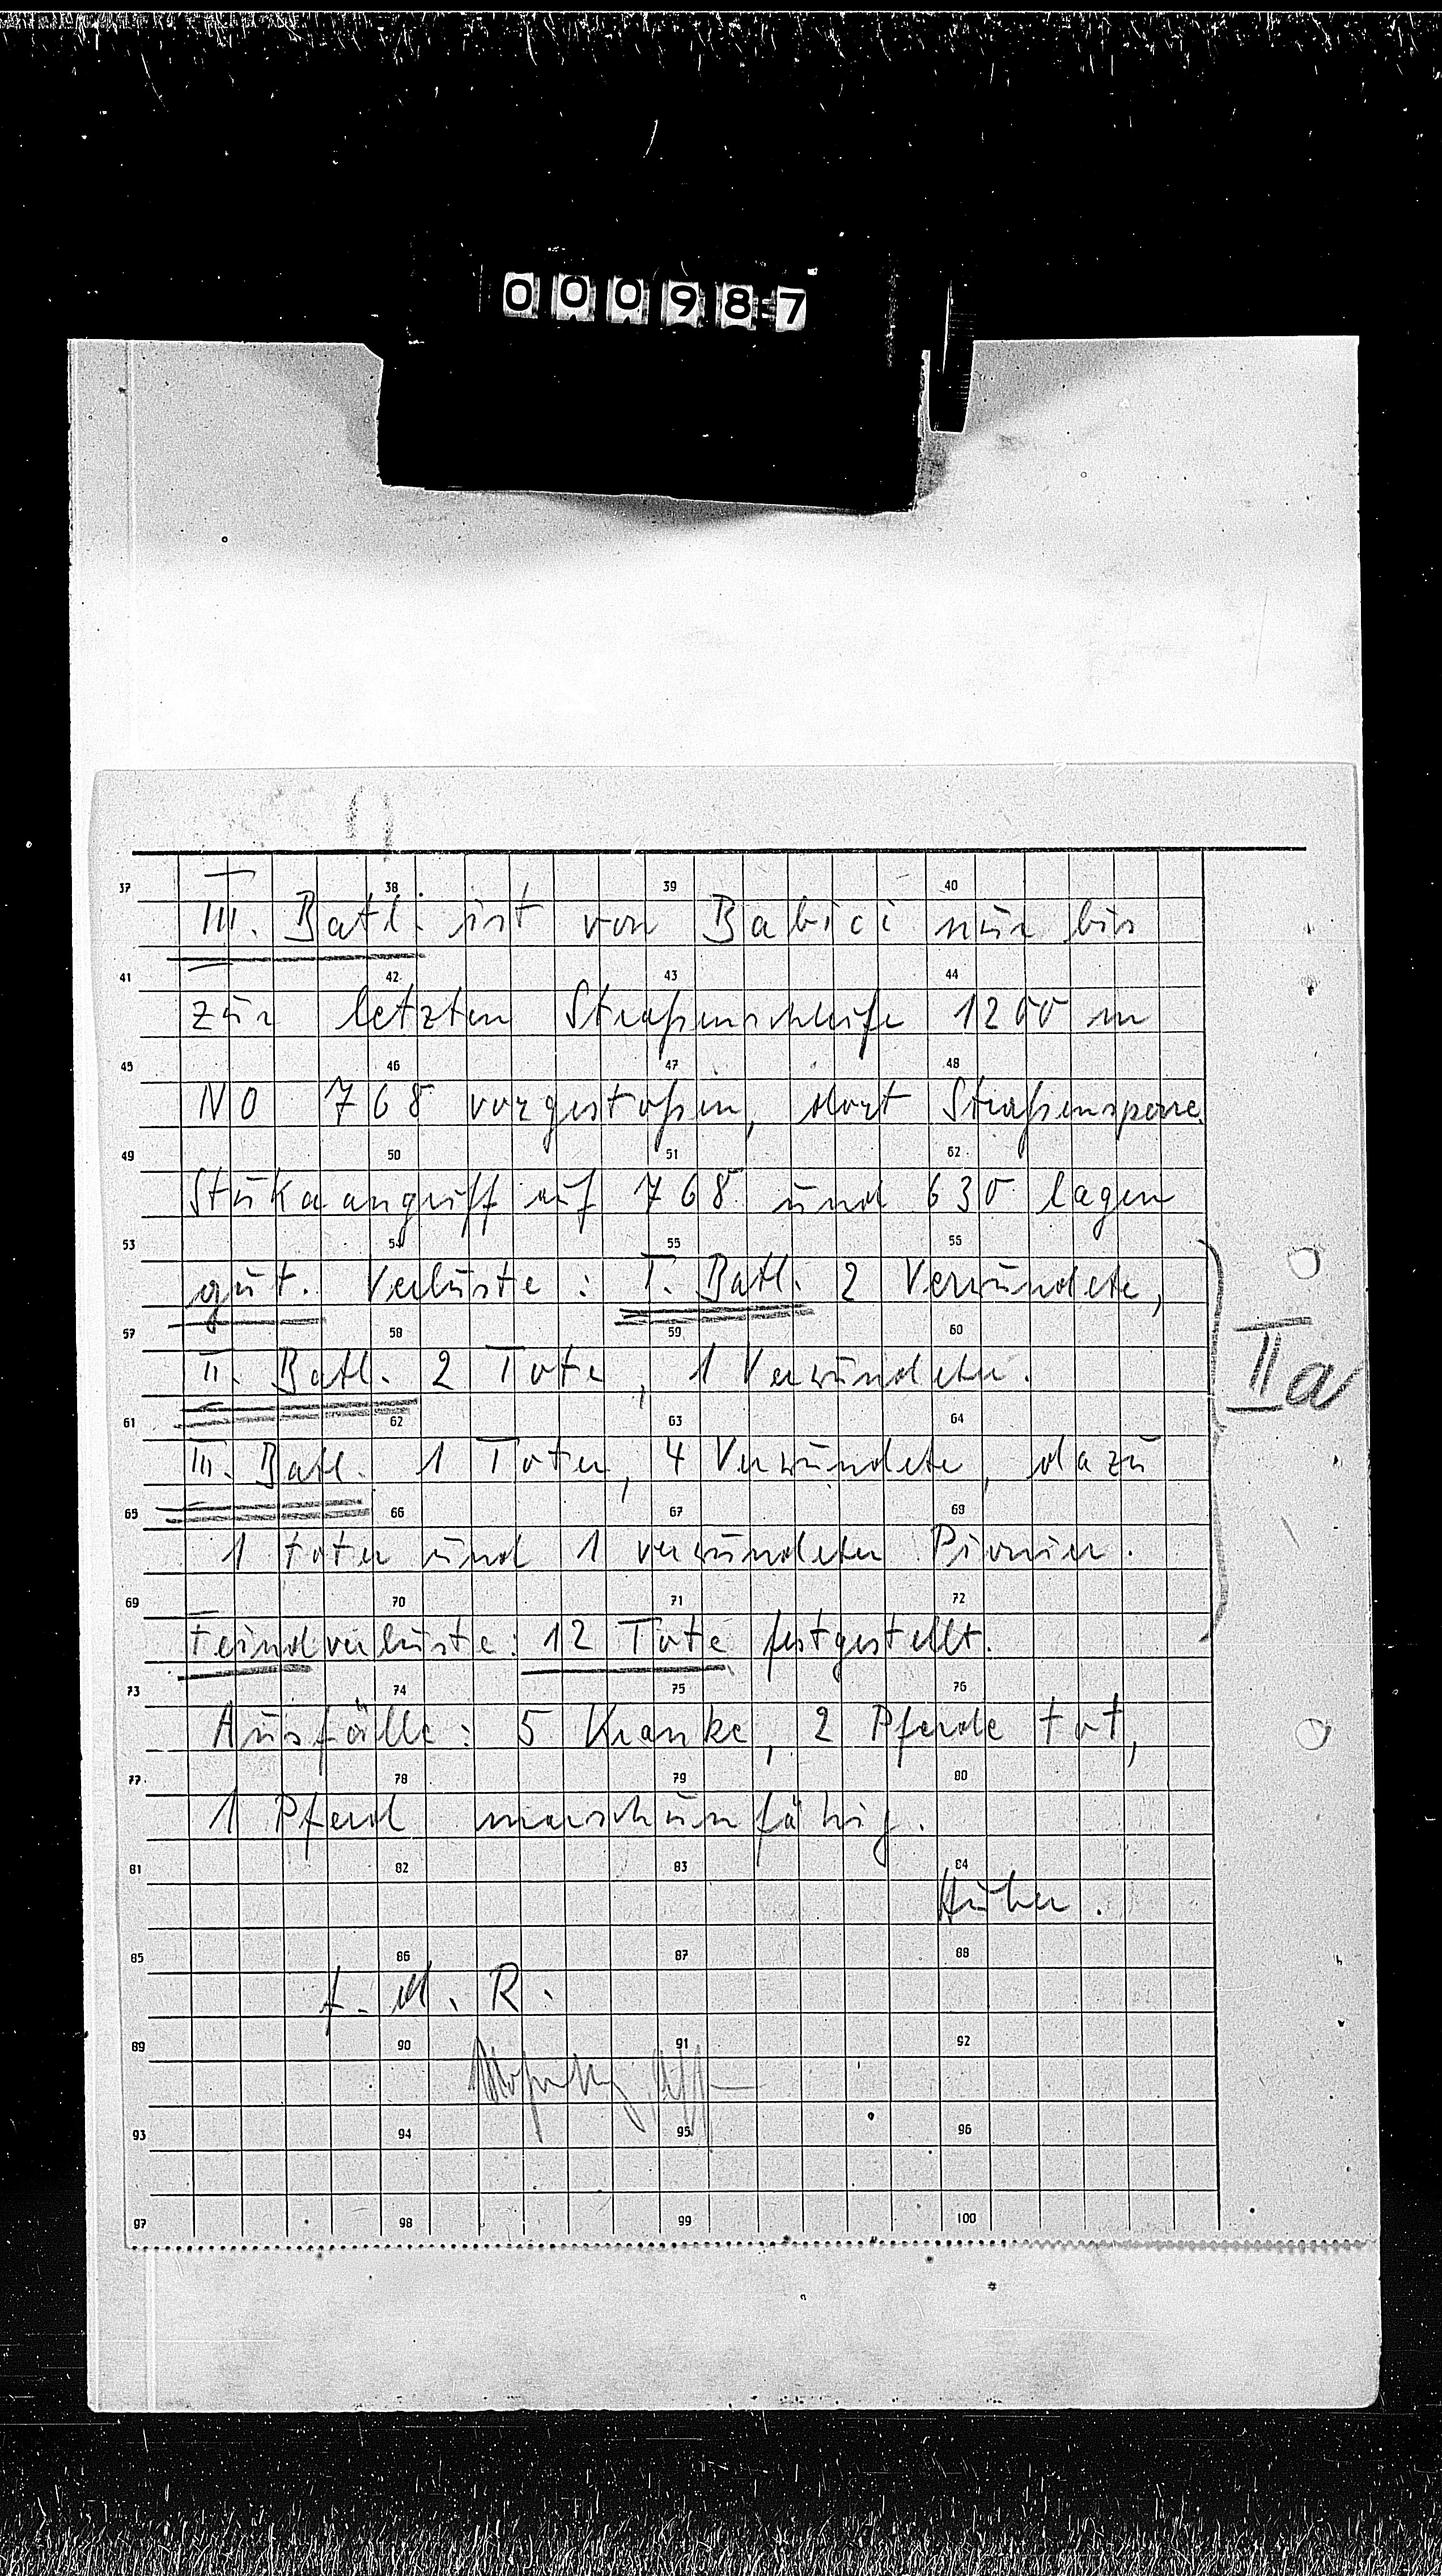 000987
37 38 39 40
III. Batl. ist von Babici nur bis
41 42 43 44
zur letzten Straßenschleife 1200 m
45 46 47 48
NO 768 vorgestoßen, dort Straßensperre.
49 50 51 52
Stukaangriff auf 768 und 630 lagen
53 54 55 56
gut. Verluste: I. Batl. 2 Verwundete,
57 58 59 60
II. Batl. 2 Tote, 1 Verwundeter.
IIa
61 62 63 64
III. Batl. 1 Toter, 4 Verwundete, dazu
65 66 67 68
1 toter und 1 verwundeter Pionier.
69 70 71 72
Feindverluste: 12 Tote festgestellt.
73 74 75 76
Ausfälle: 5 Kranke, 2 Pferde tot,
77 78 79 80
1 Pferd marschunfähig.
81 82 83 84
Huber.
85 86 87 88
f. d. R.
89 90 91 92
93 94 95 96
97 98 99 100